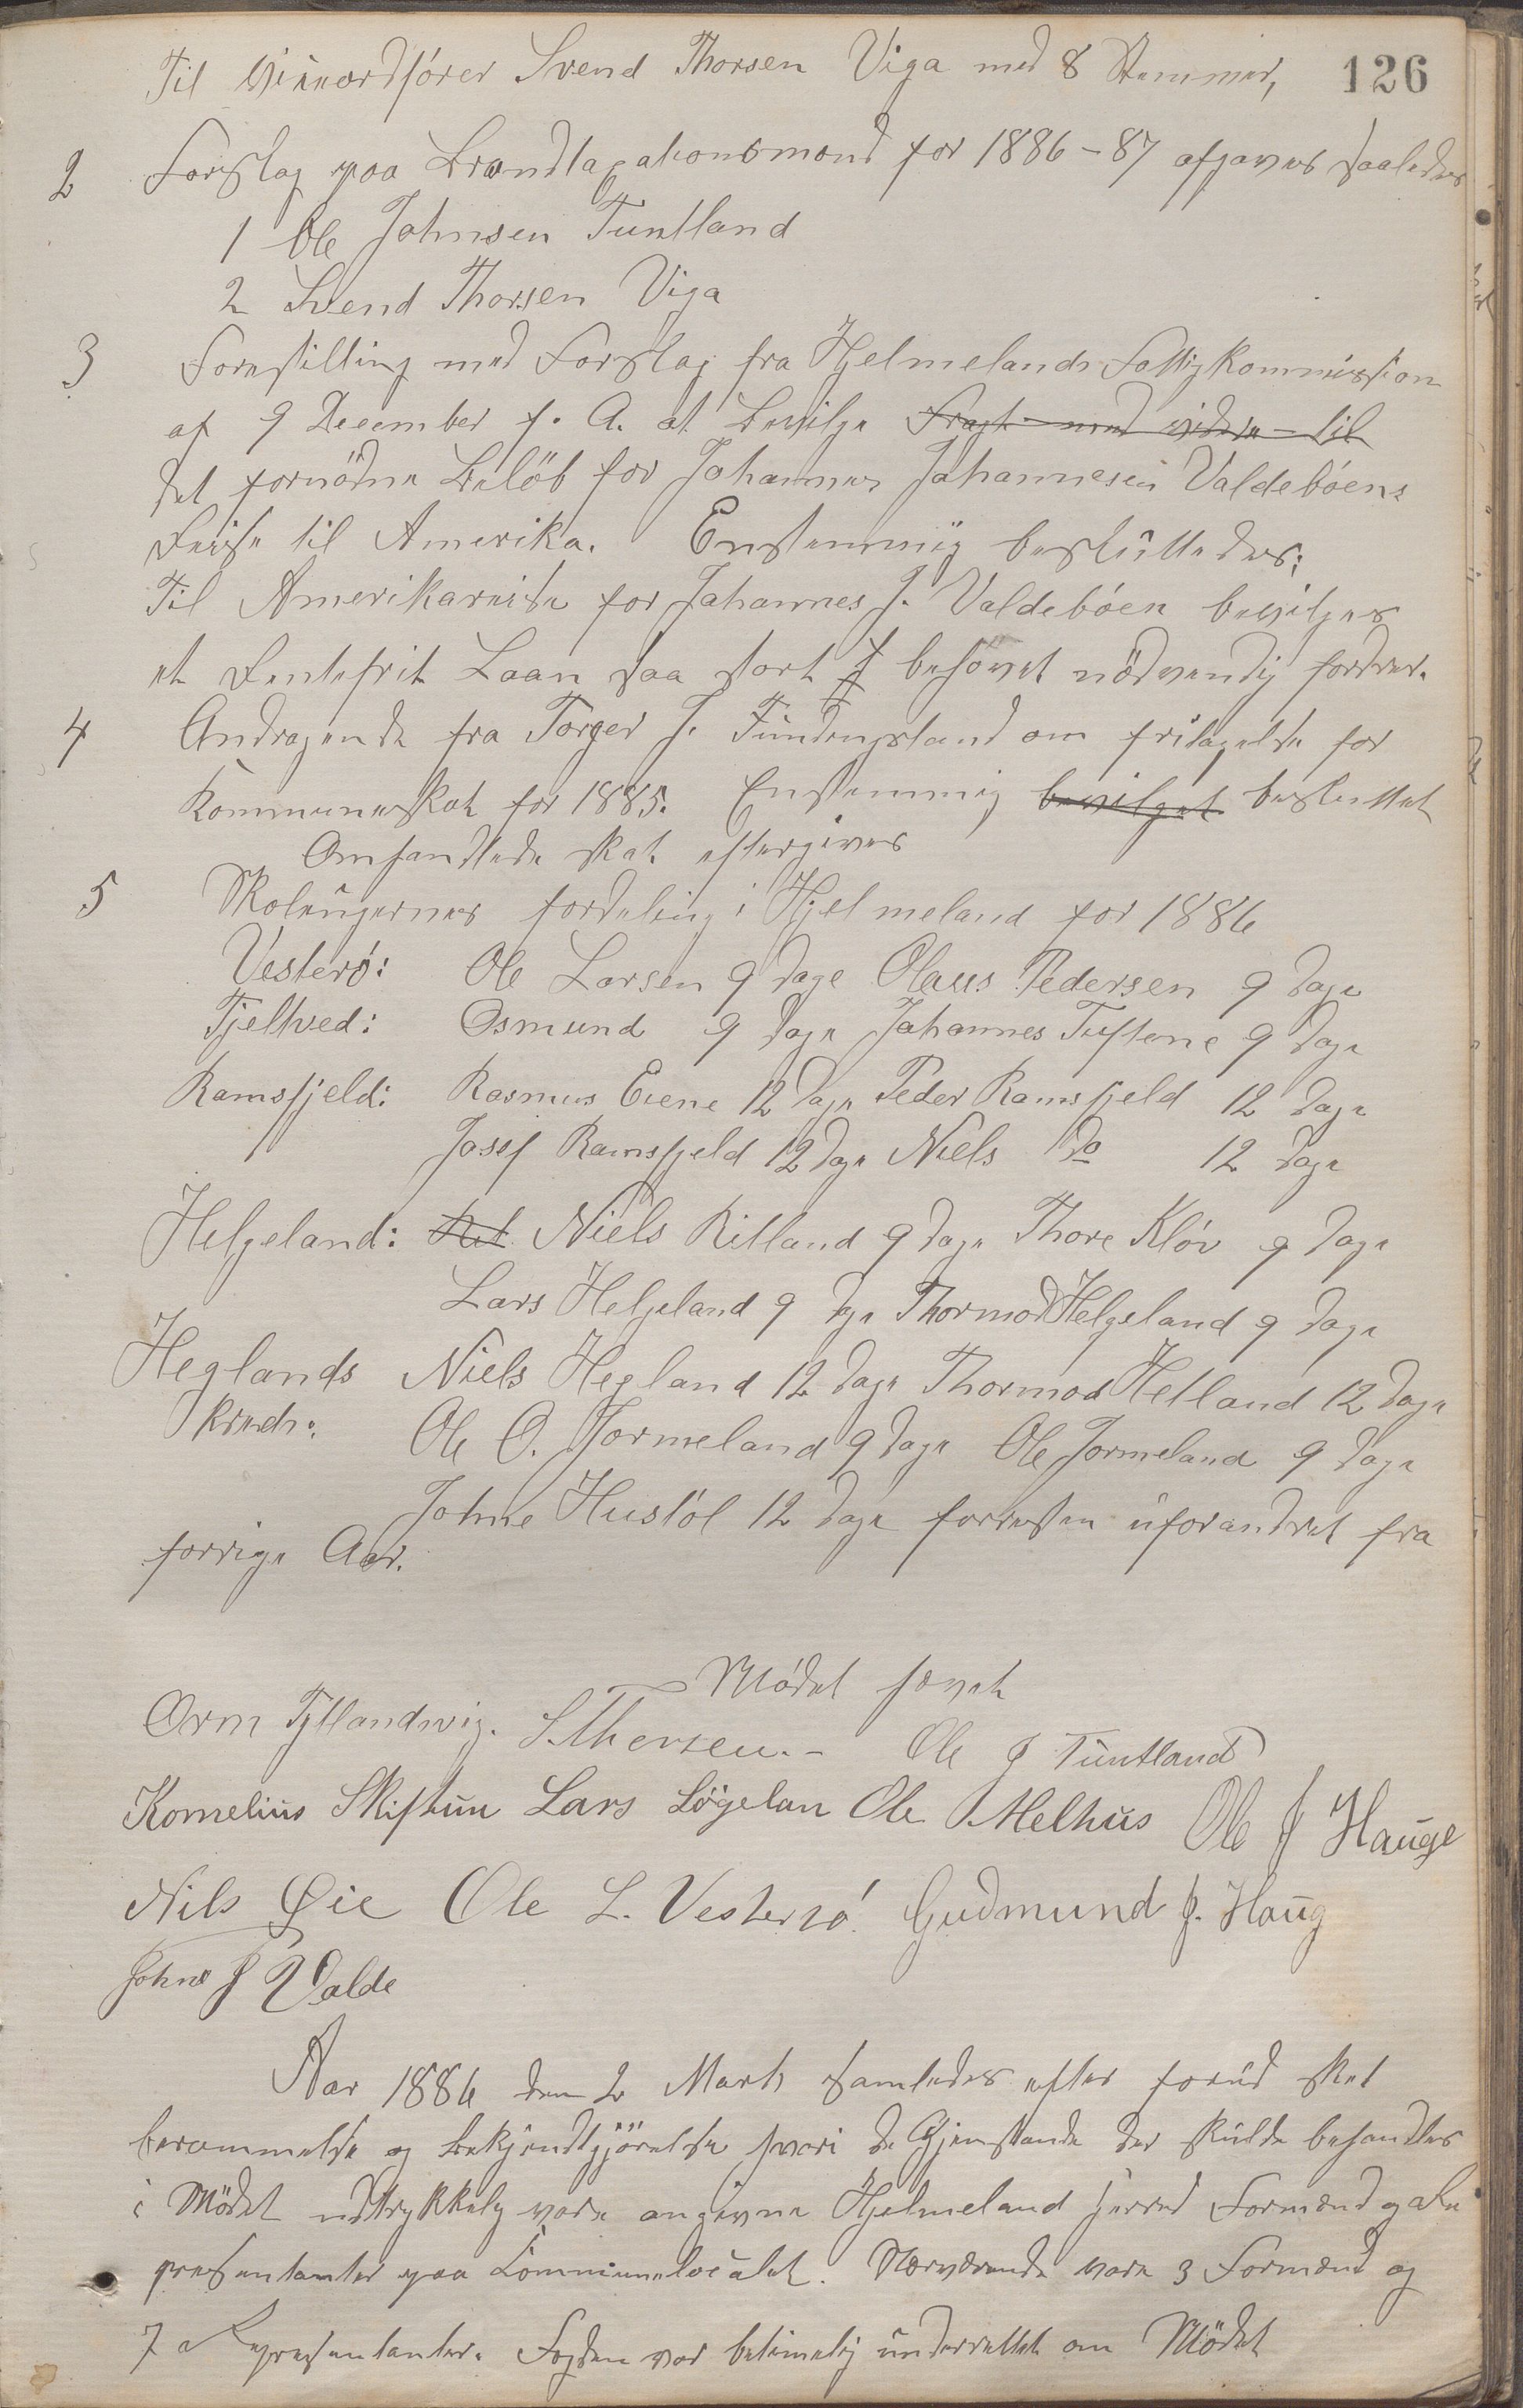 126
Til Viceordfører Svend Thorsen Viga med 8 Stemmer,
2 Forslag paa Brandtaxationsmænd for 1886-87 afgaves saaledes
1 Ole Johnsen Tuntland
2 Svend Thorsen Viga
3 Forestilling med Forslag fra Hjelmelands Fattigkommission
af 9 December f. A. at bevilge Fragt med videre til
det fornödne Belöb for Johannes Johannesen Valdebøens
Reise til Amerika. Enstemmig besluttedes:
Til Amerikareise for Johannes J. Valdebøen bevilges
et Rentefrit Laan saa stort behovet nödvendig fordrer.
4 Andragende fra Torger J. Funderland om fritagelse for
Kommuneskat for 1885. Enstemmig bevilget besluttet
Omhandlede skat eftergives
5 Skolengernes fordeling i Hjelmeland for 1886
Vesterø: Ole Larsen 9 dage Olaus Pedersen 9 dage
Tjeltved: Osmund 9 dage Johannes Tuftene 9 dage
Ramsfjeld: Rasmus Eiene 12 dage Peder Ramsfjeld 12 dage
Josef Ramsfjeld 12 dage Niels do 12 dage
Helgeland: Niels Ritland 9 dage Thore Kløv 9 dage
Lars Helgeland 9 dage Thormod Helgeland 9 dage
Heglands Niels Hegland 12 dage Thormod Hetland 12 dage
Kreds: Ole O. Tormeland 9 dage Ole Tormeland 9 dage
Johne Hustöl 12 dage forresten uforandret fra
forrige Aar.
Mødet hævet
Orm Fytlandsvig. S. Thorsen. - Ole J Tuntland
Kornelius Skiftun Lars Lögelan Ole Melhus Ole J Hauge
Nils Øie Ole L. Vesterø Gudmund J. Haug
Johne J Valde
Aar 1886 den 2 Marts samledes efter forud sket
berammelse og bekjendtgjörelse hvori de Gjenstande der skulde behandles
i Mödet udtrykkelig vare angivne Hjelmeland herred Formænd og Re
presentanter paa Communelocalet. Nærværende vare 3 Formænd og
7 Representanter. Fogden var betimelig underrettet om Mödet